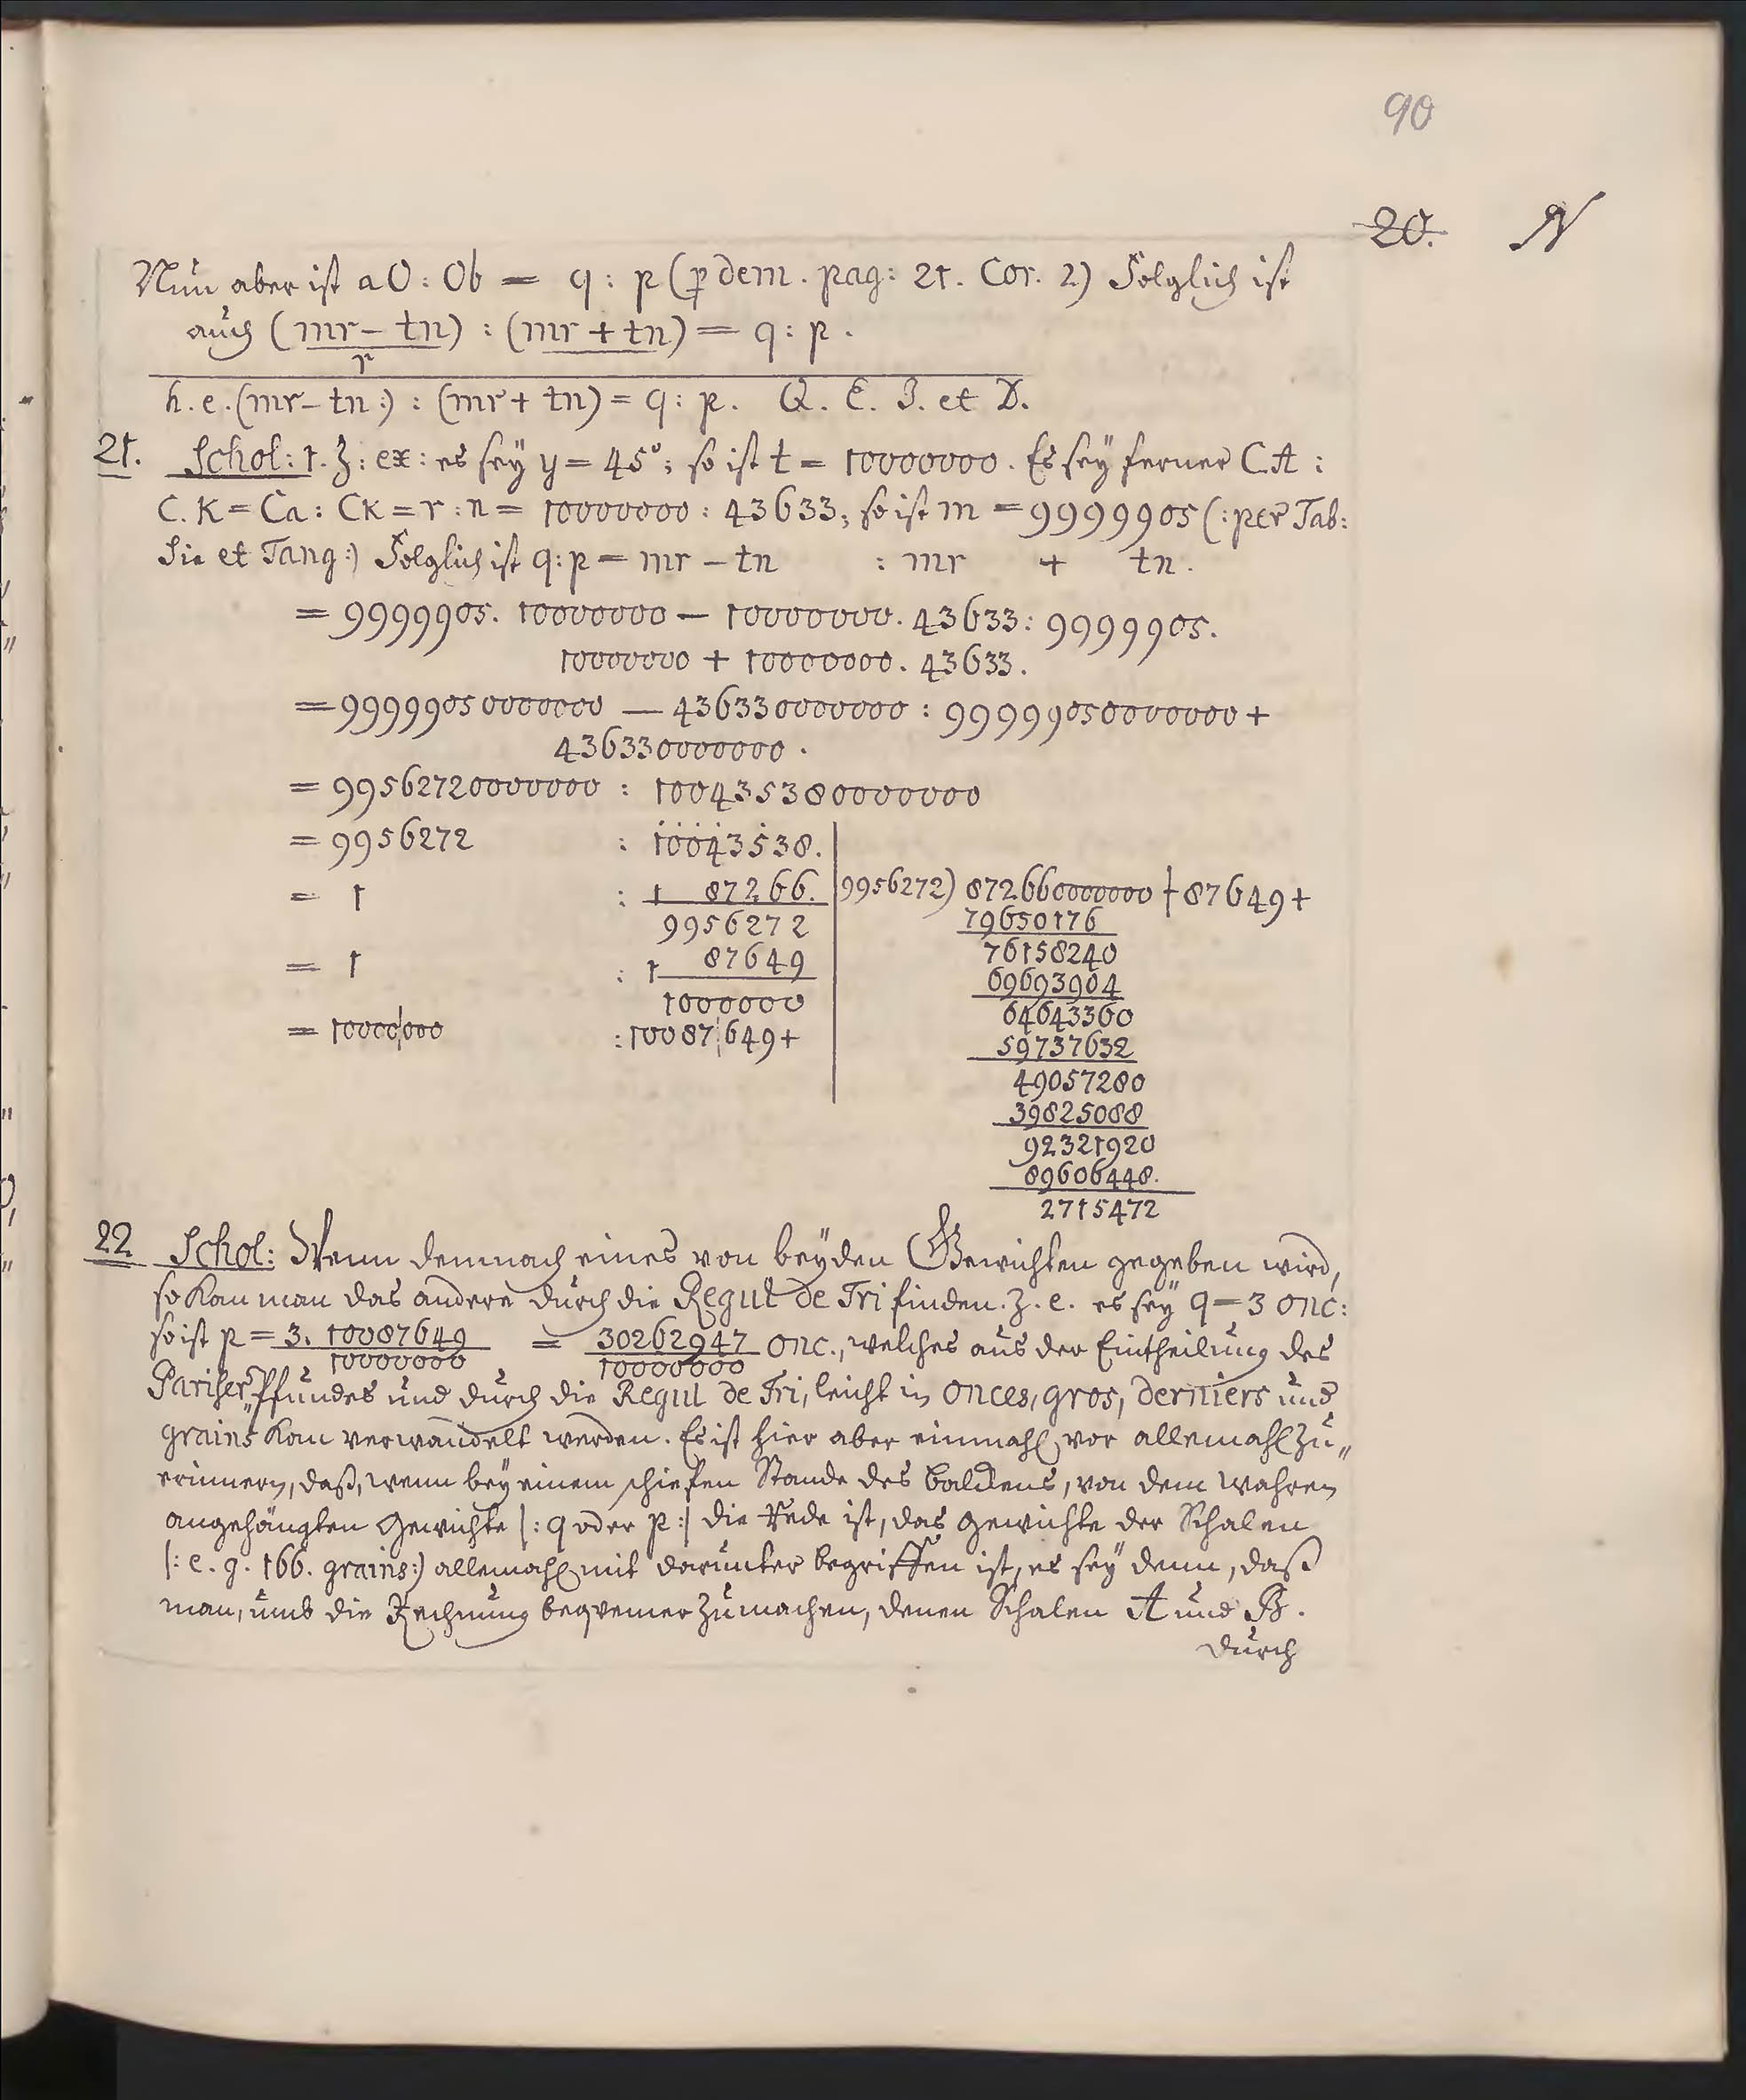 90
20. N
Nun aber ist aO : Ob = q : p (p dem. pag: 21. Cor. 2) Folglich ist
auch (mr – tn) : (mr + tn) = q : p.
r
h. e. (mr – tn :) : (mr + tn) = q : p. Q. E. I. et D.
21. Schol: 1. Z: ex: es sey y = 45°; so ist t = 10000000. Es sey ferner CA :
C. K = Ca : Ck = r : n = 10000000 : 43633; so ist m = 9999905 (: per Tab:
Sin et Tang:) Folglich ist q : p = mr – tn : mr + tn.
= 9999905. 10000000 – 10000000. 43633 : 9999905.
10000000 + 10000000. 43633.
= 99999050000000 – 436330000000 : 99999050000000 +
436330000000.
= 99562720000000 : 100435380000000
= 9956272 : 10043538.
= 1 : 1 87266. 9956272) 872660000000 | 87649+
9956272 79650176
76158240
= 1 : 1 87649 69693904
1000000 64643360
= 10000|000 : 10087|649+ 59737632
49057280
39825088
92321920
89606448.
2715472
22 Schol: Wenn demnach eines von beyden Gewichten gegeben wird,
so kan man das andere durch die Regul de Tri finden. z. e. es sey q = 3 onc:
so ist p = 3. 10087649 = 30262947 onc., welches aus der Eintheilung des
10000000 10000000
Pariser„Pfundes und durch die Regul de Tri, leicht in onces, gros, derniers und
grains kan verwandelt werden. Es ist hier aber einmahl vor allemahl zu„
erinnern, daß, wenn bey einem schiefen Stande des balckens, von dem wahren
angehängten Gewichte |: q oder p :| die Rede ist, das Gewichte der Schalen
|: e. g. 166. grains :) allemahl mit darunter begriffen ist, es sey denn, daß
man, umb die Rechnung beqvemer zu machen, denen Schalen A und B.
durch